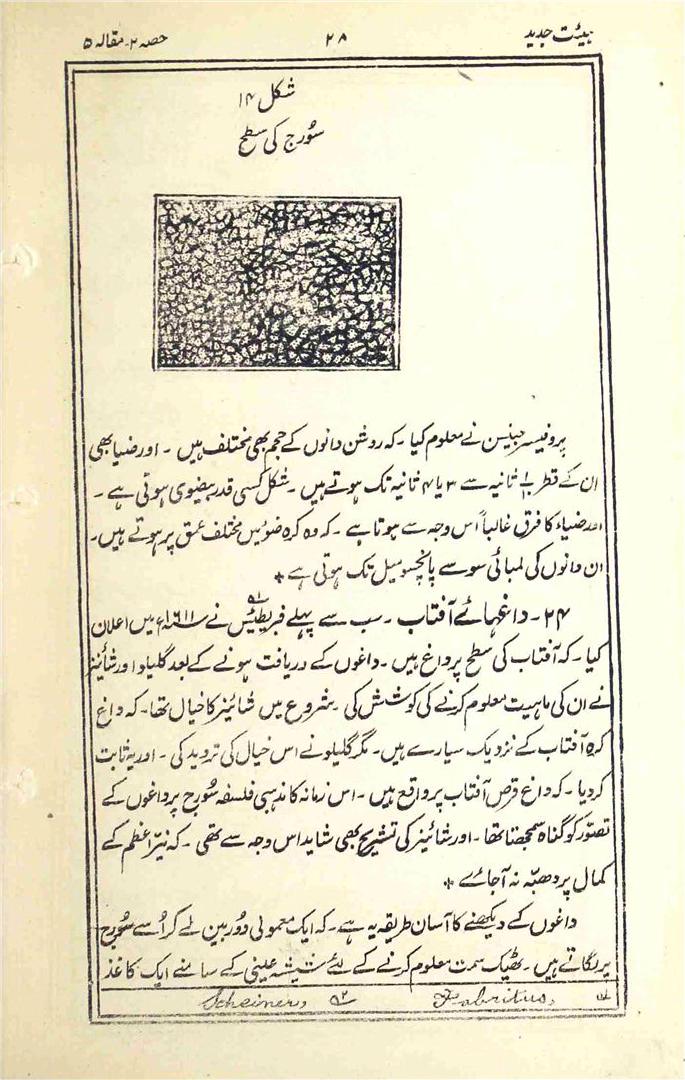 ہیئت جدید
۲۸
حصہ ۲۔ مقالہ ۵
شکل ۱۴
سُورج کی سطح
پروفیسر جینسن نے معلوم کیا۔ کہ روشن دانوں کے حجم بھی مختلف ہیں۔ اور ضیا بھی
ان کے قطر ثانیہ سے ۳ یا ۴ ثانیہ تک ہوتے ہیں۔ شکل کسی قدر بیضوی ہوتی ہے۔
اور ضیاء کا فرق غالباً اس وجہ سے ہوتا ہے۔ کہ وہ کرہ ضو میں مختلف عمق پر ہوتے ہیں۔
ان دانوں کی لمبائی سو سے پانچسو میل تک ہوتی ہے *
۲۴۔ داغہائے آفتاب۔ سب سے پہلے فبریطئیس نے سنہ ۱۶۱۱ء میں اعلان
کیا۔ کہ آفتاب کی سطح پر داغ ہیں۔ داغوں کے دریافت ہونے کے بعد گلیلو اور شائینر
نے ان کی ماہیت معلوم کرنے کی کوشش کی۔ شروع میں شائینر کا خیال تھا۔ کہ داغ
کرہ آفتاب کے نزدیک سیارے ہیں۔ مگر گلیلو نے اس خیال کی تردید کی۔ اور یہ ثابت
کر دیا۔ کہ داغ قرص آفتاب پر واقع ہیں۔ اس زمانہ کا مذہبی فلسفہ سُورج پر داغوں کے
تصوّر کو گناہ سمجھتا تھا۔ اور شائینر کی تشریح بھی شاید اس وجہ سے تھی۔ کہ نیّر اعظم کے
کمال پر دھبّہ نہ آجائے *
داغوں کے دیکھنے کا آسان طریقہ یہ ہے۔ کہ ایک معمولی دُوربین لے کر اُسے سُورج
پر لگاتے ہیں۔ ٹھیک سمت معلوم کرنے کے لئے شیشہ عینی کے سامنے ایک کاغذ
۱ Fabritius, ۲ Scheiner,